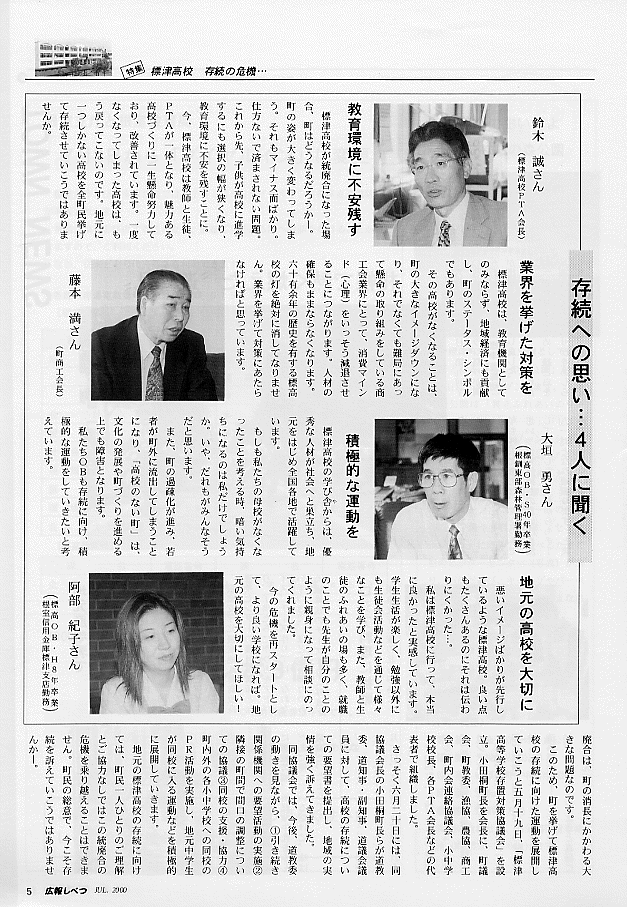 特集 標津高校 存続の危機…
存続への思い…4人に聞く
鈴木 誠さん
(標津高校PTA会長)
教育環境に不安残す
標津高校が統廃合になった場
合、町はどうなるだろうかー。
町の姿が大きく変わってしま
う。それもマイナス面ばかり。
仕方ないで済まされない問題。
これから先、子供が高校に進学
するにも選択の幅が狭くなり、
教育環境に不安を残すことに。
今、標津高校は教師と生徒、
PTAが一体となり、魅力ある
高校づくりに一生懸命努力して
おり、改善されています。一度
なくなってしまった高校は、も
う戻ってこないのです。地元に
一つしかない高校を全町民挙げ
て存続させていこうではありま
せんか。
業界を挙げた対策を
標津高校は、教育機関として
のみならず、地域経済にも貢献
し、町のステータス・シンボル
でもあります。
その高校がなくなることは、
町の大きなイメージダウンにな
り、それでなくても難局にあっ
て懸命の取り組みをしている商
工会業界にとって、消費マイン
ド(心理)をいっそう減退させ
ることにつながります。人材の
確保もままならなくなります。
六十有余年の歴史を有する標高
校の灯を絶対に消してなりませ
ん。業界を挙げて対策にあたら
なければと思っています。
藤本 満さん
(町商工会長)
大垣 勇さん
(標高OB・S40年卒業/
根釧東部森林管理署勤務)
積極的な運動を
標津高校の学び舎からは、優
秀な人材が社会へと巣立ち、地
元をはじめ全国各地で活躍して
います。
もしも私たちの母校がなくな
ったことを考える時、暗い気持
ちになるのは私だけでしょう
か。いや、だれもがみんなそう
だと思います。
また、町の過疎化が進み、若
者が町外に流出してしまうこと
になり、「高校のない町」は、
文化の発展や町づくりを進める
上でも障害となります。
私たちOBも存続に向け、積
極的な運動をしていきたいと考
えています。
地元の高校を大切に
悪いイメージばかりが先行し
ているような標津高校。良い点
もたくさんあるのにそれは伝わ
りにくかった…。
私は標津高校に行って、本当
に良かったと実感しています。
学生生活が楽しく、勉強以外に
も生徒会活動などを通じて様々
なことを学び、また、教師と生
徒のふれあいの場も多く、就職
のことでも先生が自分のことの
ように親身になって相談にのっ
てくれました。
今の危機を再スタートとし
て、より良い学校になれば。地
元の高校を大切にしてほしい!
阿部 紀子さん
(標高OB・H8年卒業/
根室信用金庫標津支店勤務)
廃合は、町の消長にかかわる大
きな問題なのです。
このため、町を挙げて標津高
校の存続に向けた運動を展開し
ていこうと五月十九日、「標津
高等学校存置対策協議会」を設
立。小田桐町長を会長に、町議
会、町教委、漁協、農協、商工
会、町内会連絡協議会、小中学
校校長、各PTA会長などの代
表者で組織しました。
さっそく六月二十日には、同
協議会長の小田桐町長らが道教
委、道知事、副知事、道議会議
員に対して、高校の存続につい
ての要望書を提出し、地域の実
情を強く訴えてきました。
同協議会では、今後、道教委
の動きを見ながら、①引き続き
関係機関への要望活動の実施②
隣接の町間で間口の調整につい
ての協議③同校の支援・協力④
町内外の各小中学校への同校の
PR活動を実施し、地元中学生
が同校に入る運動などを積極的
に展開していきます。
地元の標津高校の存続に向け
ては、町民一人ひとりのご理解
とご協力なしではこの統廃合の
危機を乗り越えることはできま
せん。町民の総意で、今こそ存
続を訴えていこうではありませ
んかー。
5 広報しべつ JUL. 2000